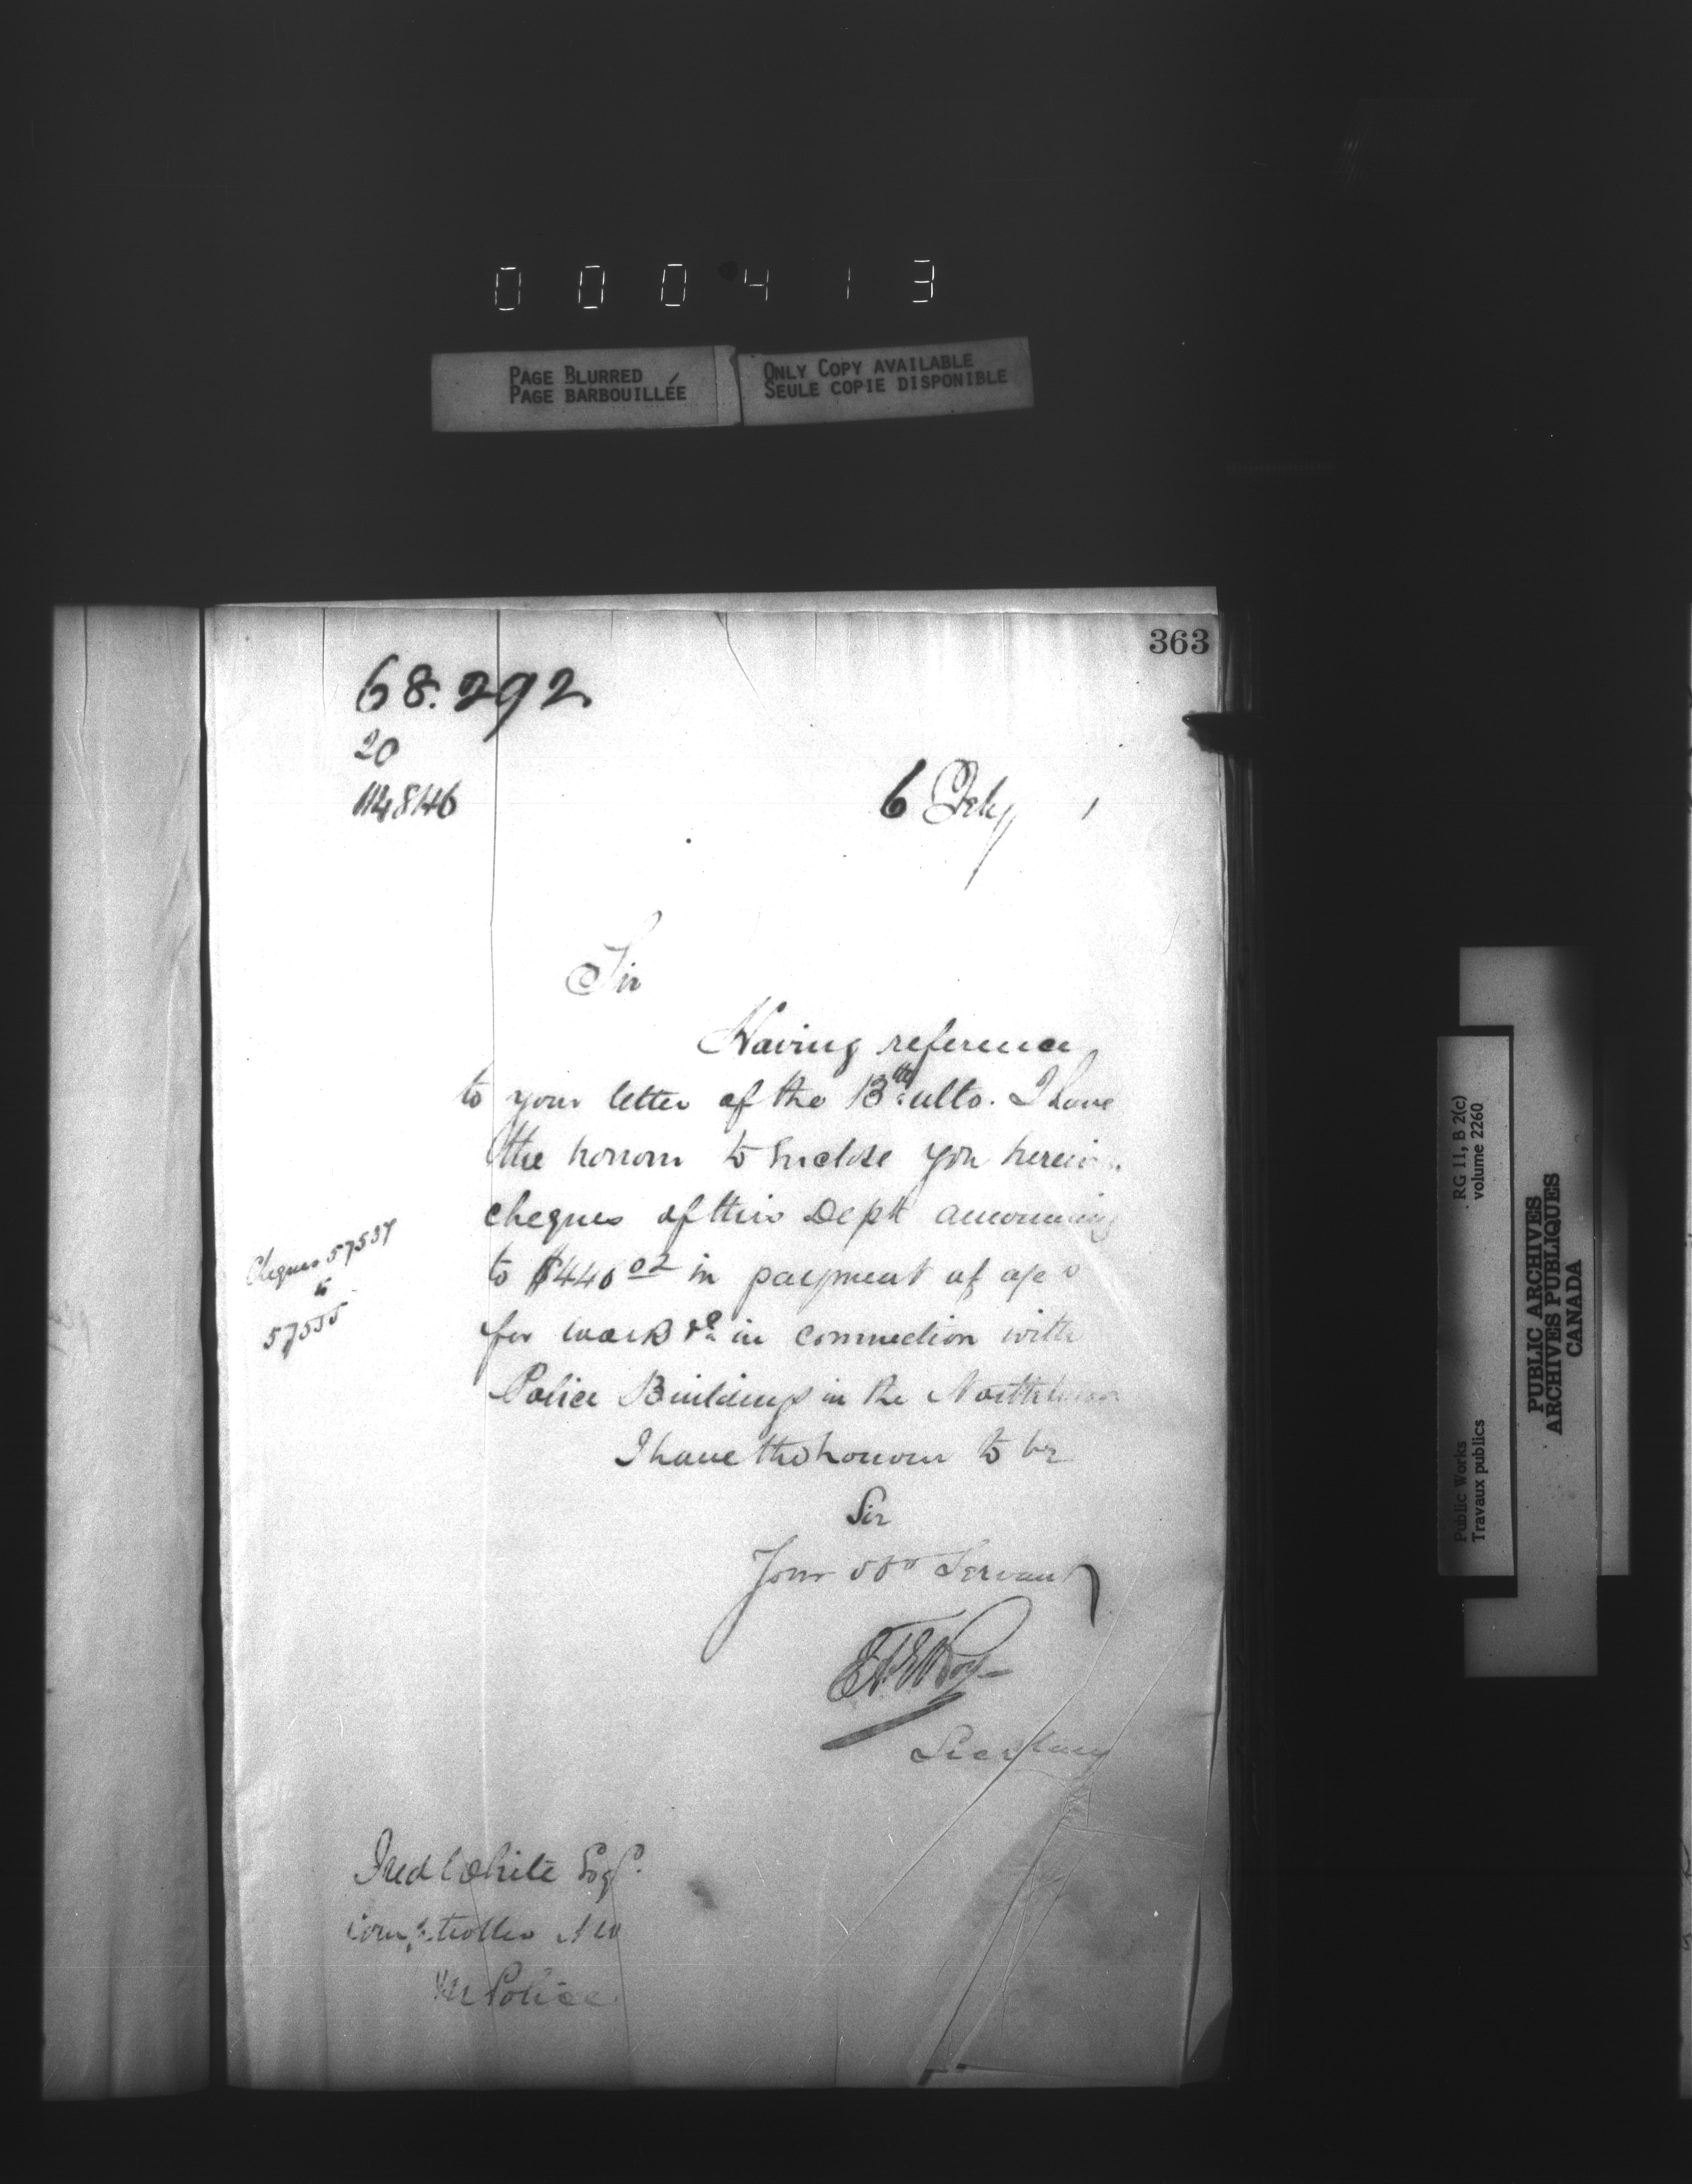 000413
PAGE BLURRED
PAGE BARBOUILLÉE
ONLY COPY AVAILABLE
SEULE COPIE DISPONIBLE
363
68.292
20
114846
6 Feby 1
Sir
Having reference
to your letter of the 13th ulto. I have
the honour to Enclose you herein
cheques of this Dept amounting
to $446 02 in payment of a/c s
for work &c in connection with
Police Buildings in the North
I have the honour to be
Sir
Your obt Servant
Secretary
Cheques
to
57555
Fred White Esqr.
Comptroller N W
M Police
RG 11, B 2(c)
volume 2260
Public Works
Travaux publics
PUBLIC ARCHIVES
ARCHIVES PUBLIQUES
CANADA